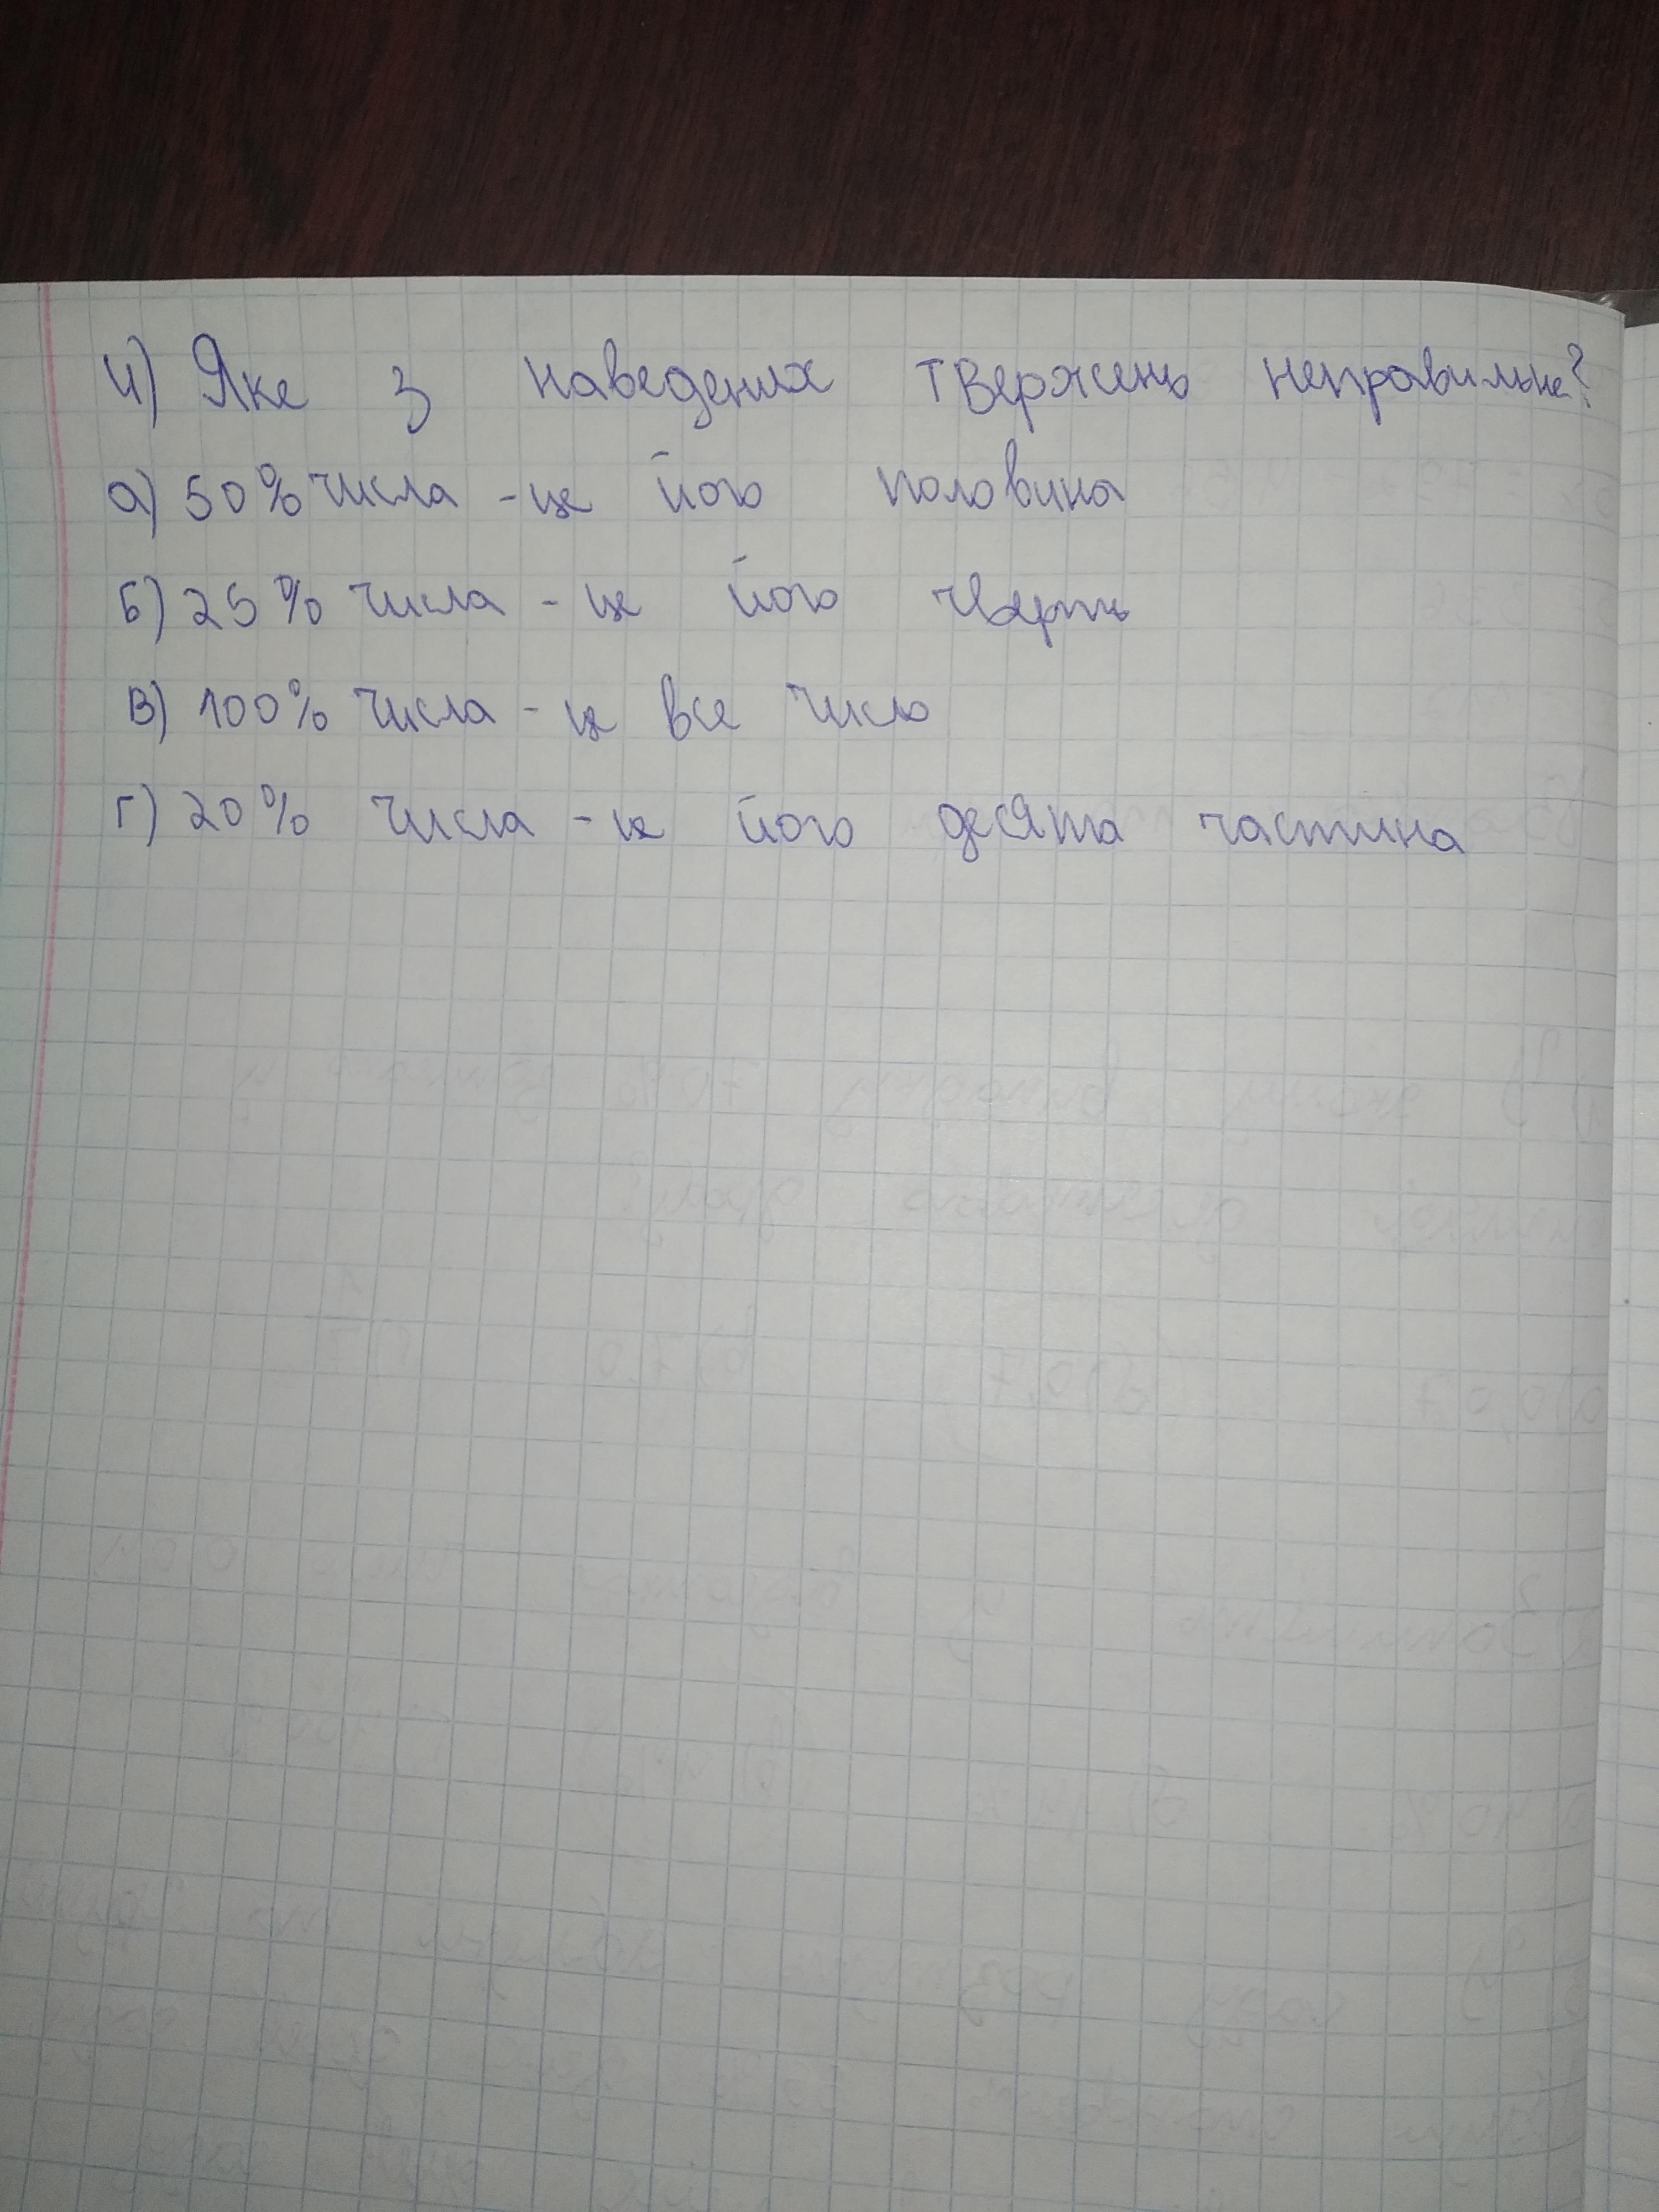 4) Яке з наведених твержень неправильне?
а) 50% числа - це його половина
б) 25% числа - це його чверть
в) 100% числа - це все число
г) 20% числа - це його десята частина